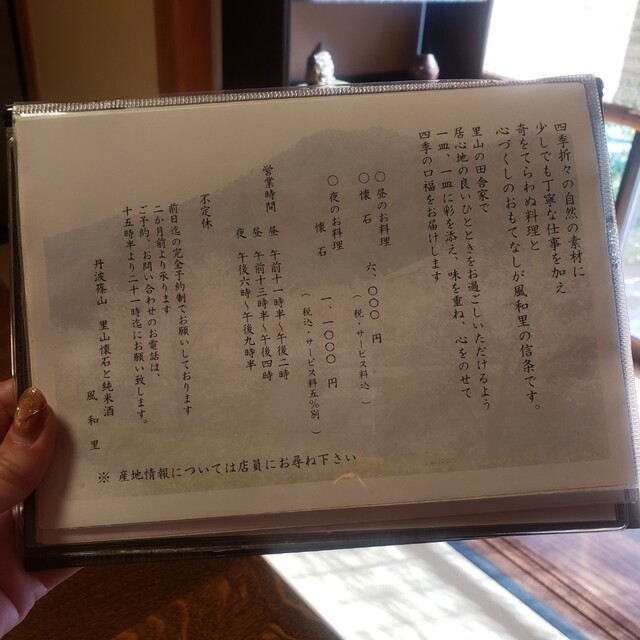 四季折々の自然の素材に
少しでも丁寧な仕事を加え
奇をてらわぬ料理と
心づくしのおもてなしが風和里の信条です。
里山の田舎家で
居心地の良いひとときをお過ごしいただけるよう
一皿、一皿に彩を添え、味を重ね、心をのせて
四季の口福をお届けします
○昼のお料理
○懐石 六、〇〇〇 円
(税・サービス料込)
○夜のお料理
懐石 一、一〇〇〇 円
(税込・サービス料五%別)
営業時間 昼 午前十一時半～午後二時
昼 午前十三時半～午後四時
夜 午後六時～午後九時半
不定休
前日迄の完全予約制でお願いしております
二か月前より承ります
ご予約、お問い合わせのお電話は、
十五時半より二十一時迄にお願い致します。
丹波篠山 里山懐石と純米酒
風和里
※ 産地情報については店員にお尋ね下さい